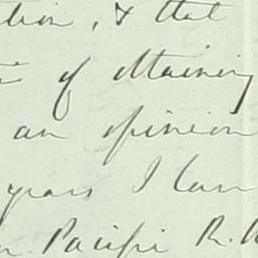 tion, & that
of attaining
an opinion
years I can
Pacific R.R